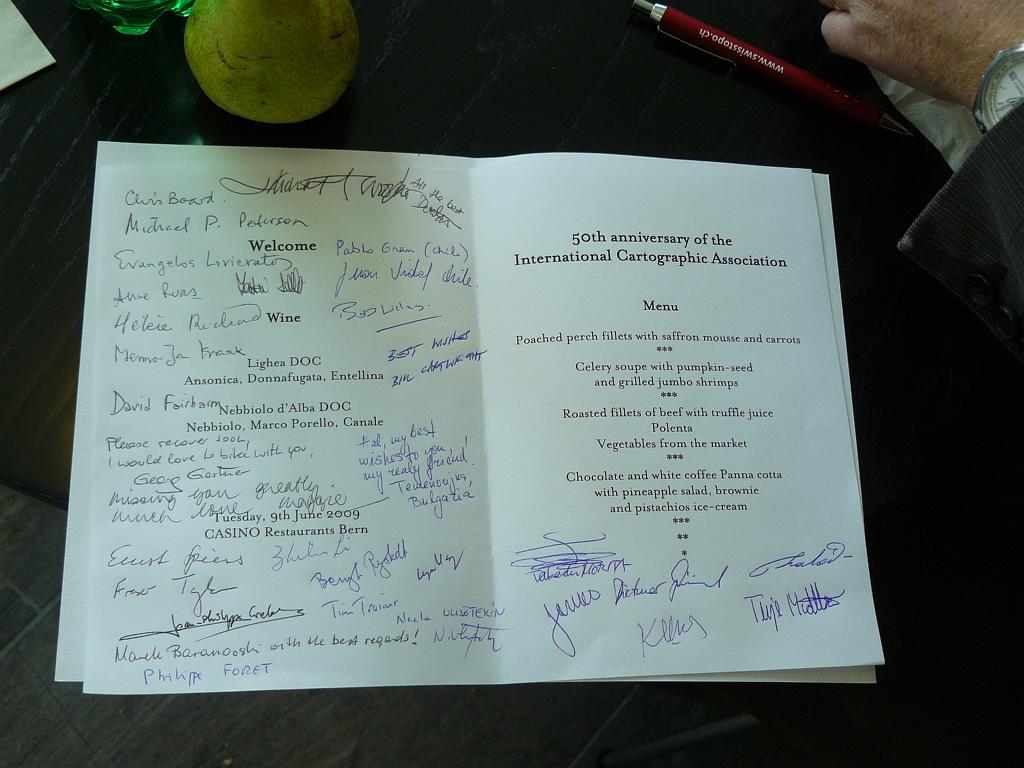 www.swisstopo.ch
Chris Board.
All the best
Michael P. Peterson
Welcome
Pablo Gran (Chile)
Evangelos Livieratos
Juan Vidal Chile.
Anne Ruas
Hélène Richard
Wine
Menno-Jan Kraak
BEST WISHES
Lighea DOC
BILL CARTWRIGHT
Ansonica, Donnafugata, Entellina
David Fairbairn
Nebbiolo d'Alba DOC
Nebbiolo, Marco Porello, Canale
Please recover soon,
I would love to bike with you,
Georg Gartner
Hal, my best
wishes to you,
my realy friend!
Bulgaria
missing you greatly
much love
Tuesday, 9th June 2009
CASINO Restaurants Bern
Ernst Spiess
Zhilin Li
Fraser Taylor
Bengt Rystedt
Jean-Philippe
Tim Trainor
Necla ULUGTEKIN
with the best regards!
Philippe FORET
50th anniversary of the
International Cartographic Association
Menu
Poached perch fillets with saffron mousse and carrots
***
Celery soupe with pumpkin-seed
and grilled jumbo shrimps
***
Roasted fillets of beef with truffle juice
Polenta
Vegetables from the market
***
Chocolate and white coffee Panna cotta
with pineapple salad, brownie
and pistachios ice-cream
***
**
*
MORITA
James
Dietmar